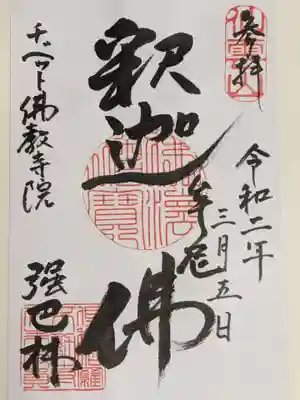 参拝
令和二年
三月五日
釈迦牟尼佛
チベット佛教寺院
强巴林
佛法僧寶